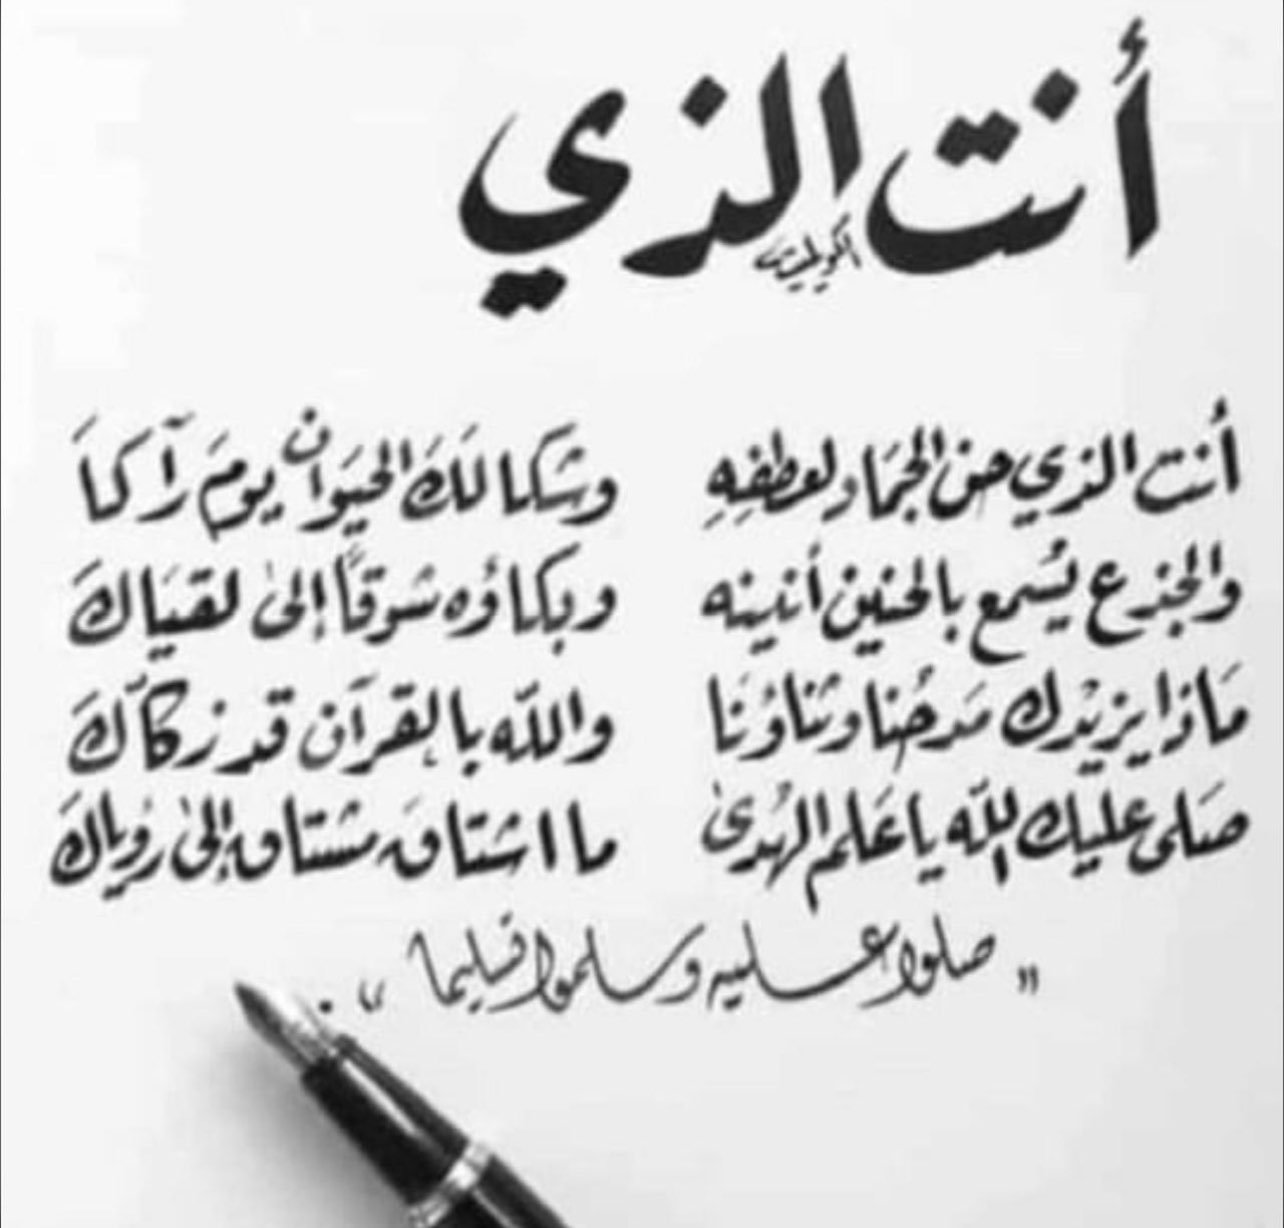 أنت الذي
أنت الذي حن الجمَاد لعطفِهِ وشكا لَكَ الحيَوان يومَ رآكاَ
والجذع يُسمع بالحنين أنينه وبكاؤه شوقاً إلىٰ لقيَاكَ
مَاذا يزيْدك مَدحُنا وثناؤنَا والله بالقرآن قد زكّاكَ
صَلى عليك الله يا عَلم الهُدىٰ ما اشتاقَ مشتاق إلىٰ رؤياكَ
" صلوا عليه وسلموا تسليما " .